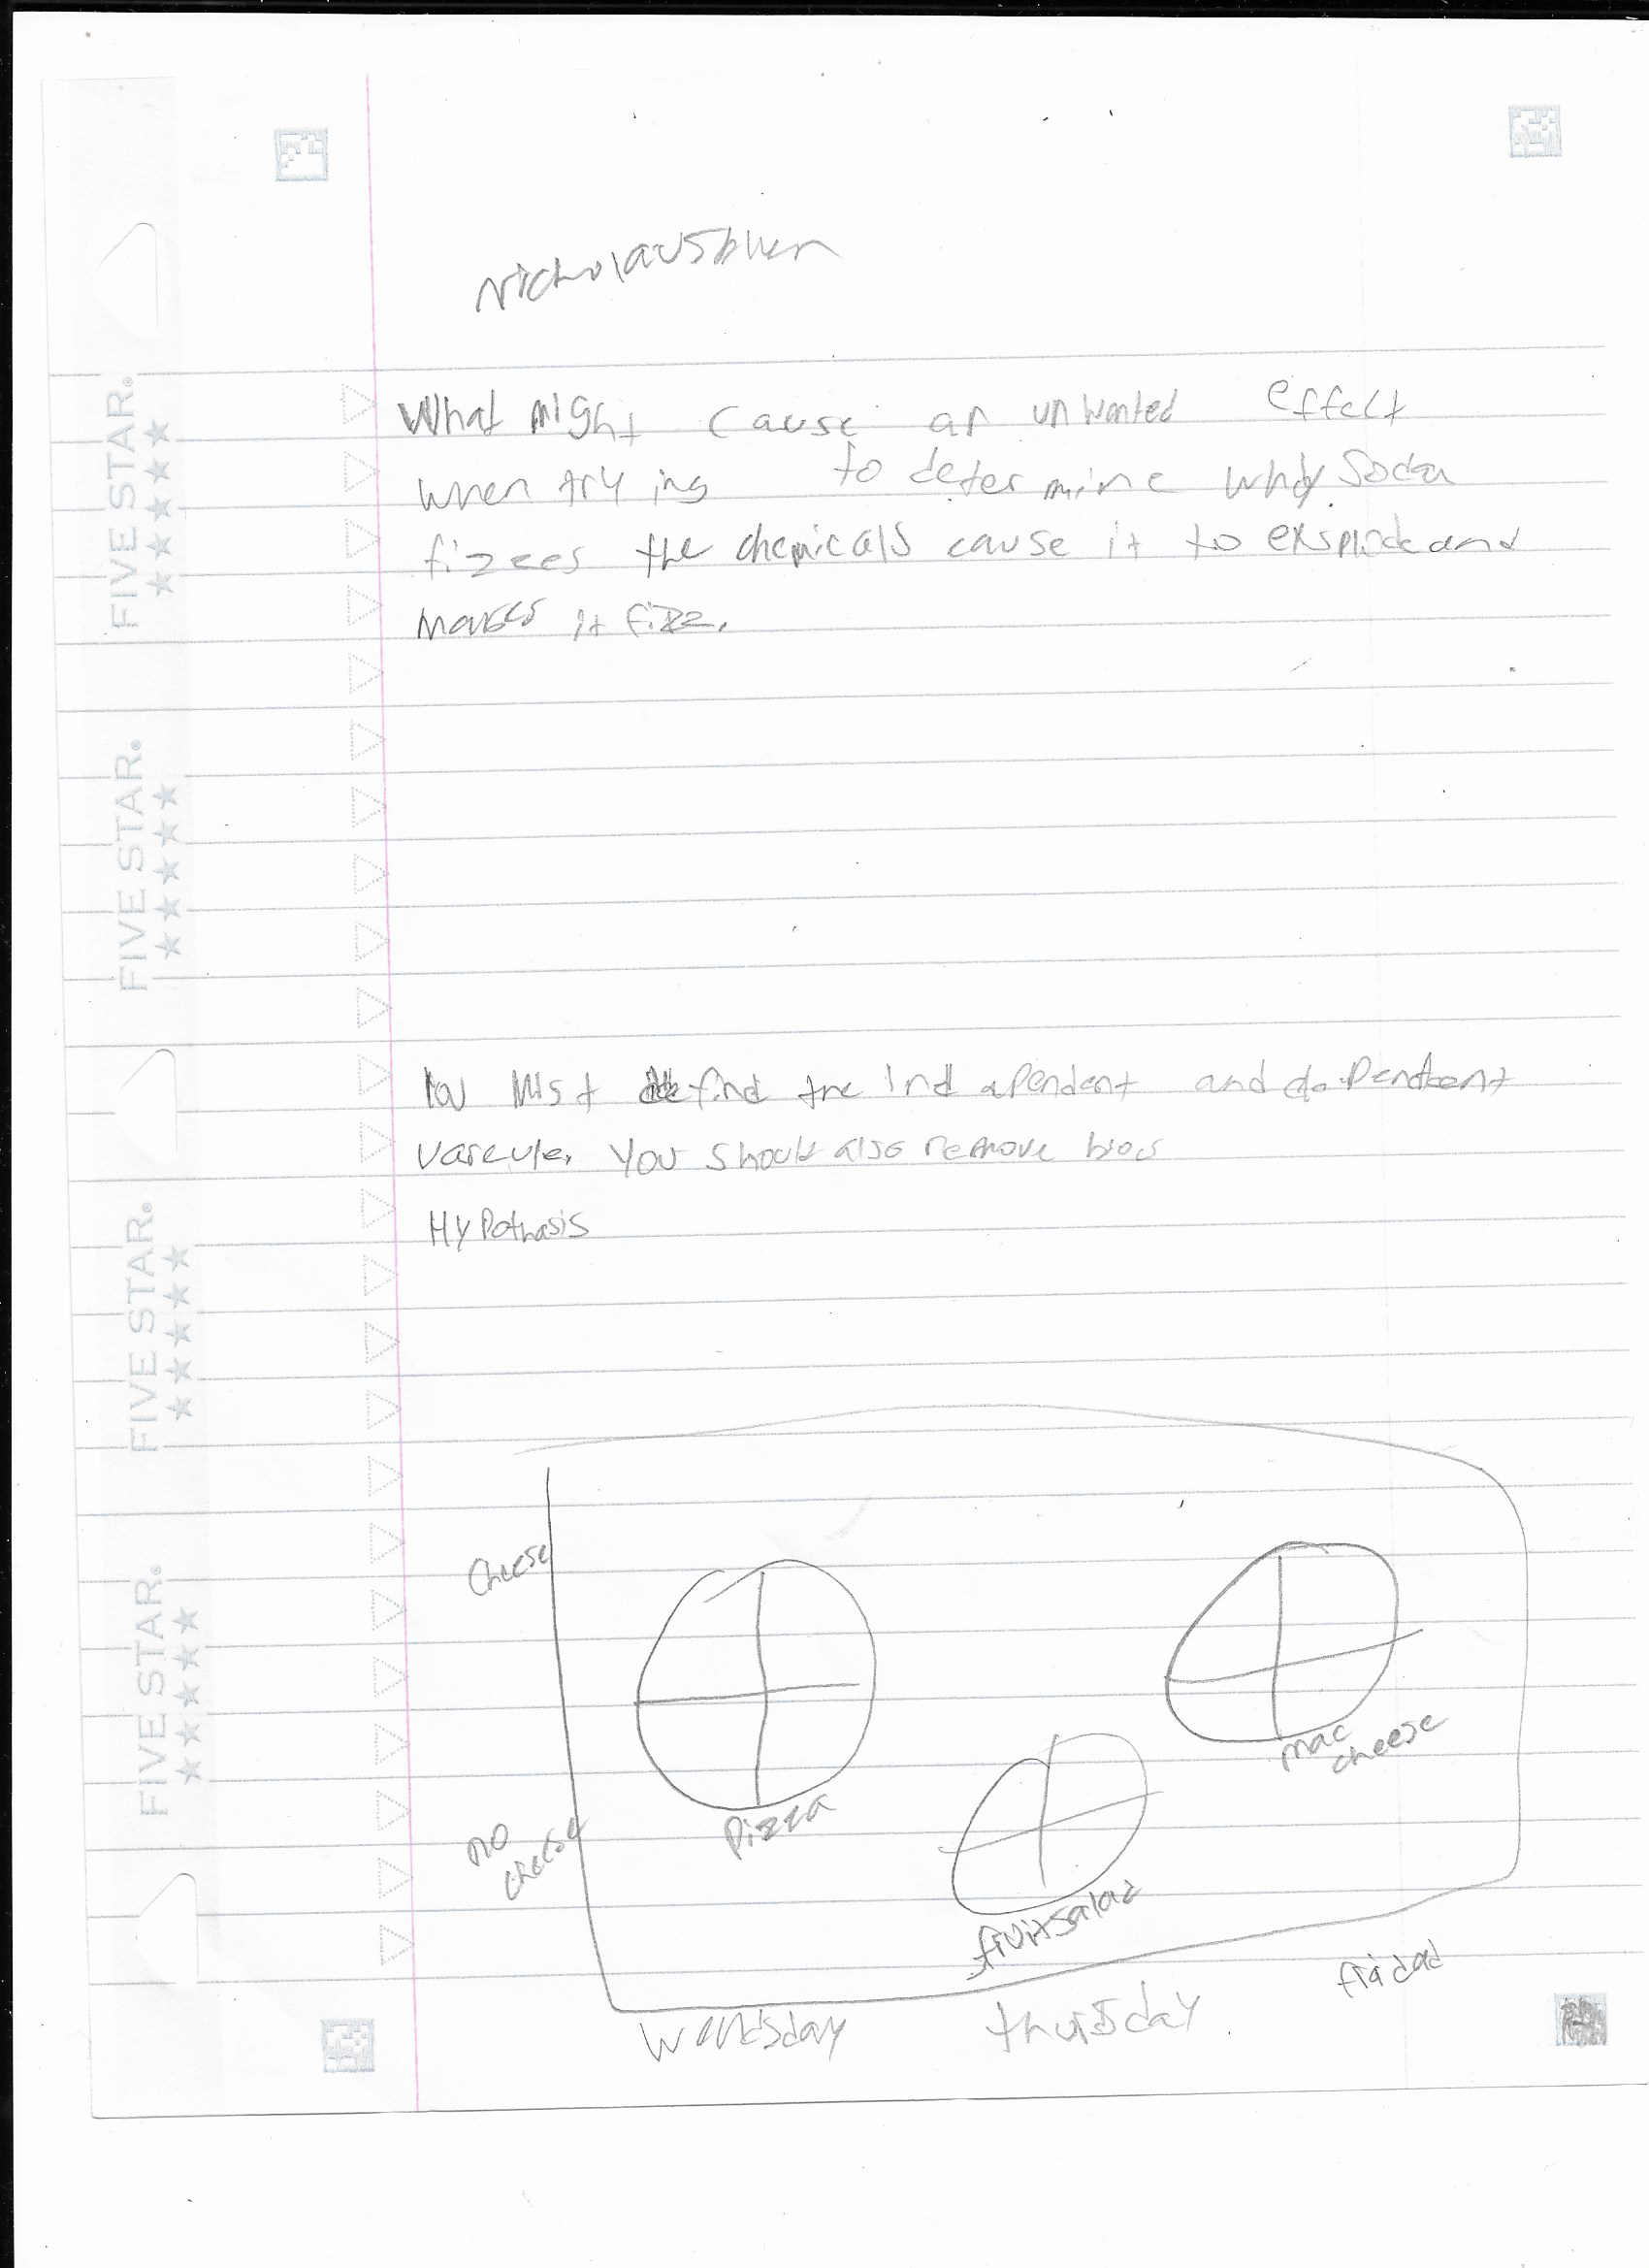 What might cause an unwanted effect
when trying to determine why soda
fizzes the chemicals cause it to explode and
makes it fizz.
You must find the indapendent and dapendent
You should also remove bias
Hypothasis
Cheese
no
cheese
Pizza
fruitsalad
mac
cheese
Wendsday
thursday
FIVE STAR.
FIVE STAR.
FIVE STAR.
FIVE STAR.